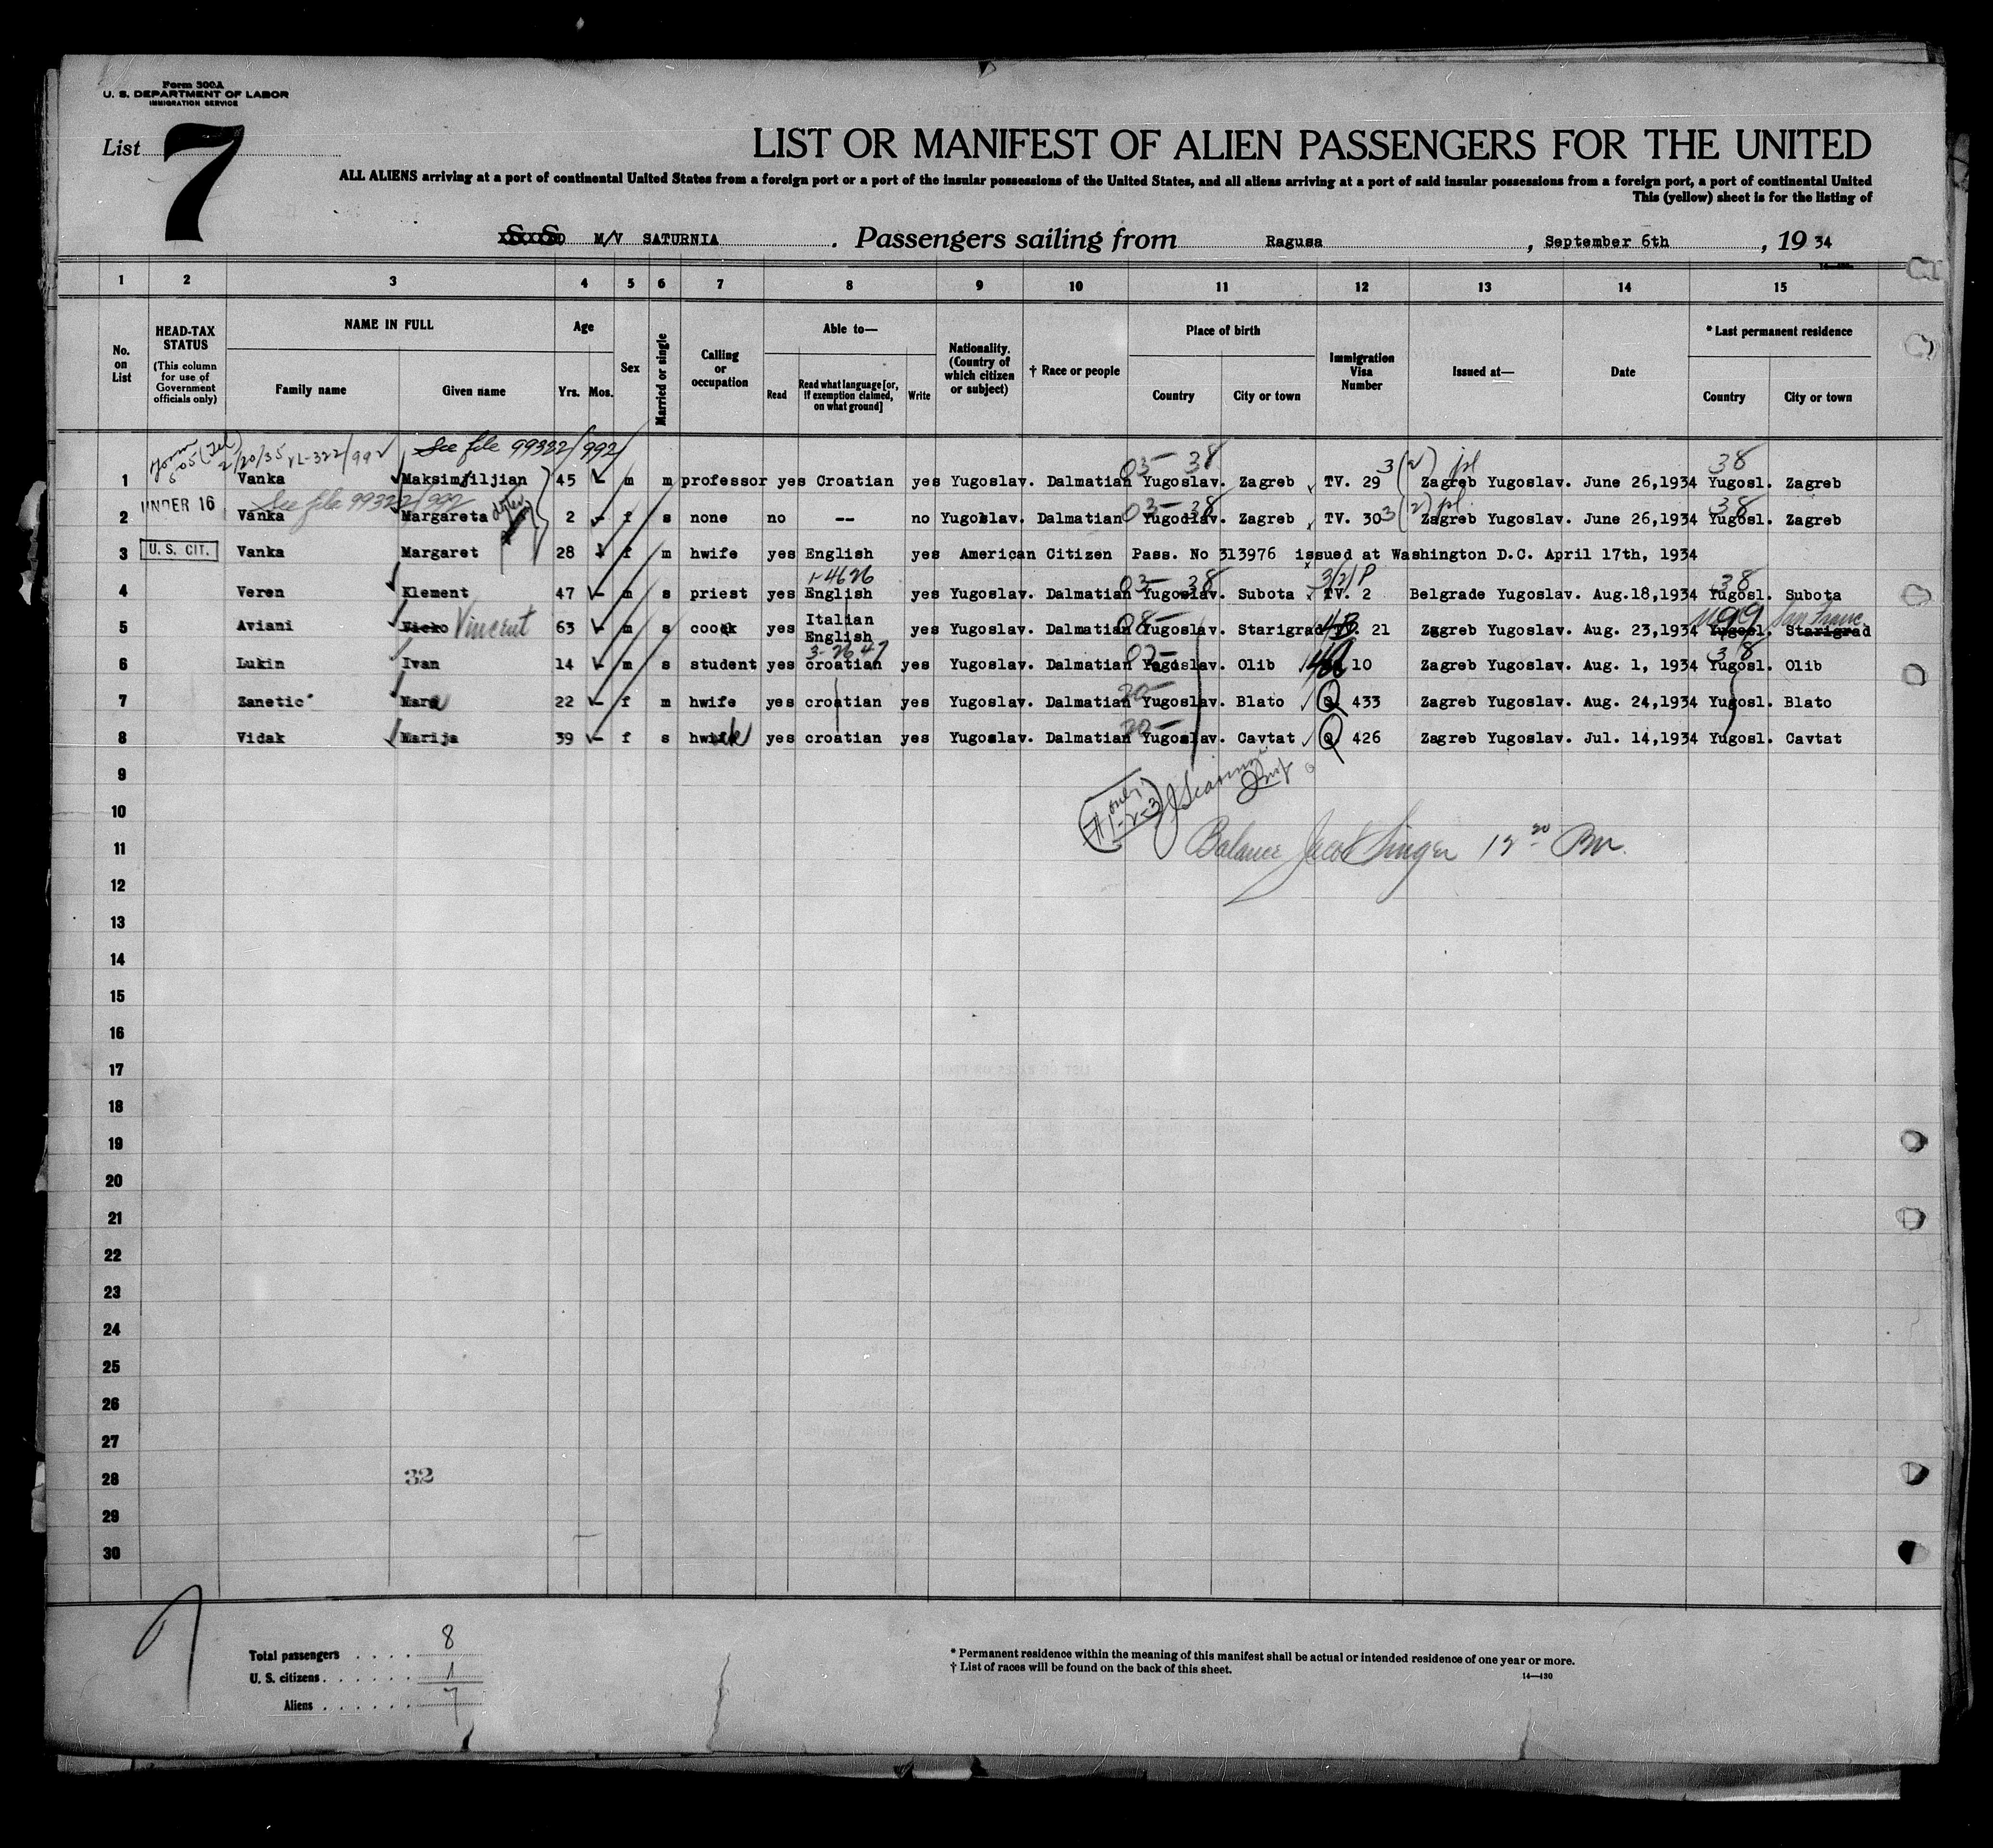 Form 500A
U. S. DEPARTMENT OF LABOR
IMMIGRATION SERVICE
List 7
LIST OR MANIFEST OF ALIEN PASSENGERS FOR THE UNITED
ALL ALIENS arriving at a port of continental United States from a foreign port or a port of the insular possessions of the United States, and all aliens arriving at a port of said insular possessions from a foreign port, a port of continental United
This (yellow) sheet is for the listing of
M/V SATURNIA . Passengers sailing from Ragusa , September 6th , 19 34
1 2 3 4 5 6 7 8 9 10 11 12 13 14 15
No. on List
HEAD-TAX STATUS
(This column for use of Government officials only)
NAME IN FULL
Family name
Given name
Age
Yrs. Mos.
Sex
Married or single
Calling or occupation
Able to—
Read
Read what language [or, if exemption claimed, on what ground]
Write
Nationality. (Country of which citizen or subject)
† Race or people
Place of birth
Country
City or town
Immigration Visa Number
Issued at—
Date
* Last permanent residence
Country
City or town
See file 99322/992
2/20/35
03- 38 3(2) 38
1 Vanka Maksimiljian 45 m m professor yes Croatian yes Yugoslav. Dalmatian Yugoslav. Zagreb TV. 29 Zagreb Yugoslav. June 26,1934 Yugosl. Zagreb
See file 99322/992
UNDER 16
03- 38 3(2) 38
2 Vanka Margareta 2 f s none no -- no Yugoslav. Dalmatian Yugoslav. Zagreb TV. 30 Zagreb Yugoslav. June 26,1934 Yugosl. Zagreb
3 U. S. CIT. Vanka Margaret 28 f m hwife yes English yes American Citizen Pass. No 313976 issued at Washington D.C. April 17th, 1934
1-4626 03- 38 3/2/P 38
4 Veren Klement 47 m s priest yes English yes Yugoslav. Dalmatian Yugoslav. Subota TV. 2 Belgrade Yugoslav. Aug.18,1934 Yugosl. Subota
5 Aviani Vicko Vincent 63 m s cook yes Italian English yes Yugoslav. Dalmatian Yugoslav. Starigrad 21 Zagreb Yugoslav. Aug. 23,1934 Yugosl. Starigrad San Franc.
38
6 Lukin Ivan 14 m s student yes croatian yes Yugoslav. Dalmatian Yugoslav. Olib 10 Zagreb Yugoslav. Aug. 1, 1934 Yugosl. Olib
20-
7 Zanetic Mara 22 f m hwife yes croatian yes Yugoslav. Dalmatian Yugoslav. Blato Q 433 Zagreb Yugoslav. Aug. 24,1934 Yugosl. Blato
20-
8 Vidak Marija 39 f s yes croatian yes Yugoslav. Dalmatian Yugoslav. Cavtat Q 426 Zagreb Yugoslav. Jul. 14,1934 Yugosl. Cavtat
9
only 1-2-3
10
11 Balance Jacob Singer
12
13
14
15
16
17
18
19
20
21
22
23
24
25
26
27
28 32
29
30
Total passengers . . . . 8
U. S. citizens . . . . . . 1
Aliens . . . . . . 7
* Permanent residence within the meaning of this manifest shall be actual or intended residence of one year or more.
† List of races will be found on the back of this sheet.
14—430